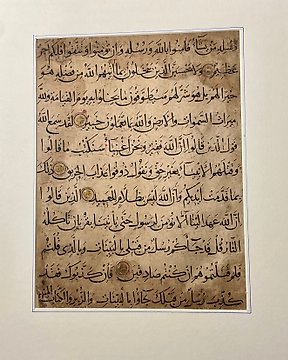 رسله من يشاء فامنوا بالله ورسله وان تؤمنوا وتتقوا فلكم اجر
عظيم ولا يحسبن الذين يبخلون بما اتيهم الله من فضله هو
خيرا لهم بل هو شر لهم سيطوقون ما بخلوا به يوم القيامة ولله
ميراث السموات والارض والله بما تعملون خبير لقد سمع الله
قول الذين قالوا ان الله فقير ونحن اغنياء سنكتب ما قالوا
وقتلهم الانبياء بغير حق ونقول ذوقوا عذاب الحريق ذلك
بما قدمت ايديكم وان الله ليس بظلام للعبيد الذين قالوا
ان الله عهد الينا الا نؤمن لرسول حتى ياتينا بقربان تاكله
النار قل قد جاءكم رسل من قبلي بالبينات وبالذي قلتم
فلم قتلتموهم ان كنتم صادقين فان كذبوك فقد
كذب رسل من قبلك جاؤا بالبينات والزبر والكتاب المنير